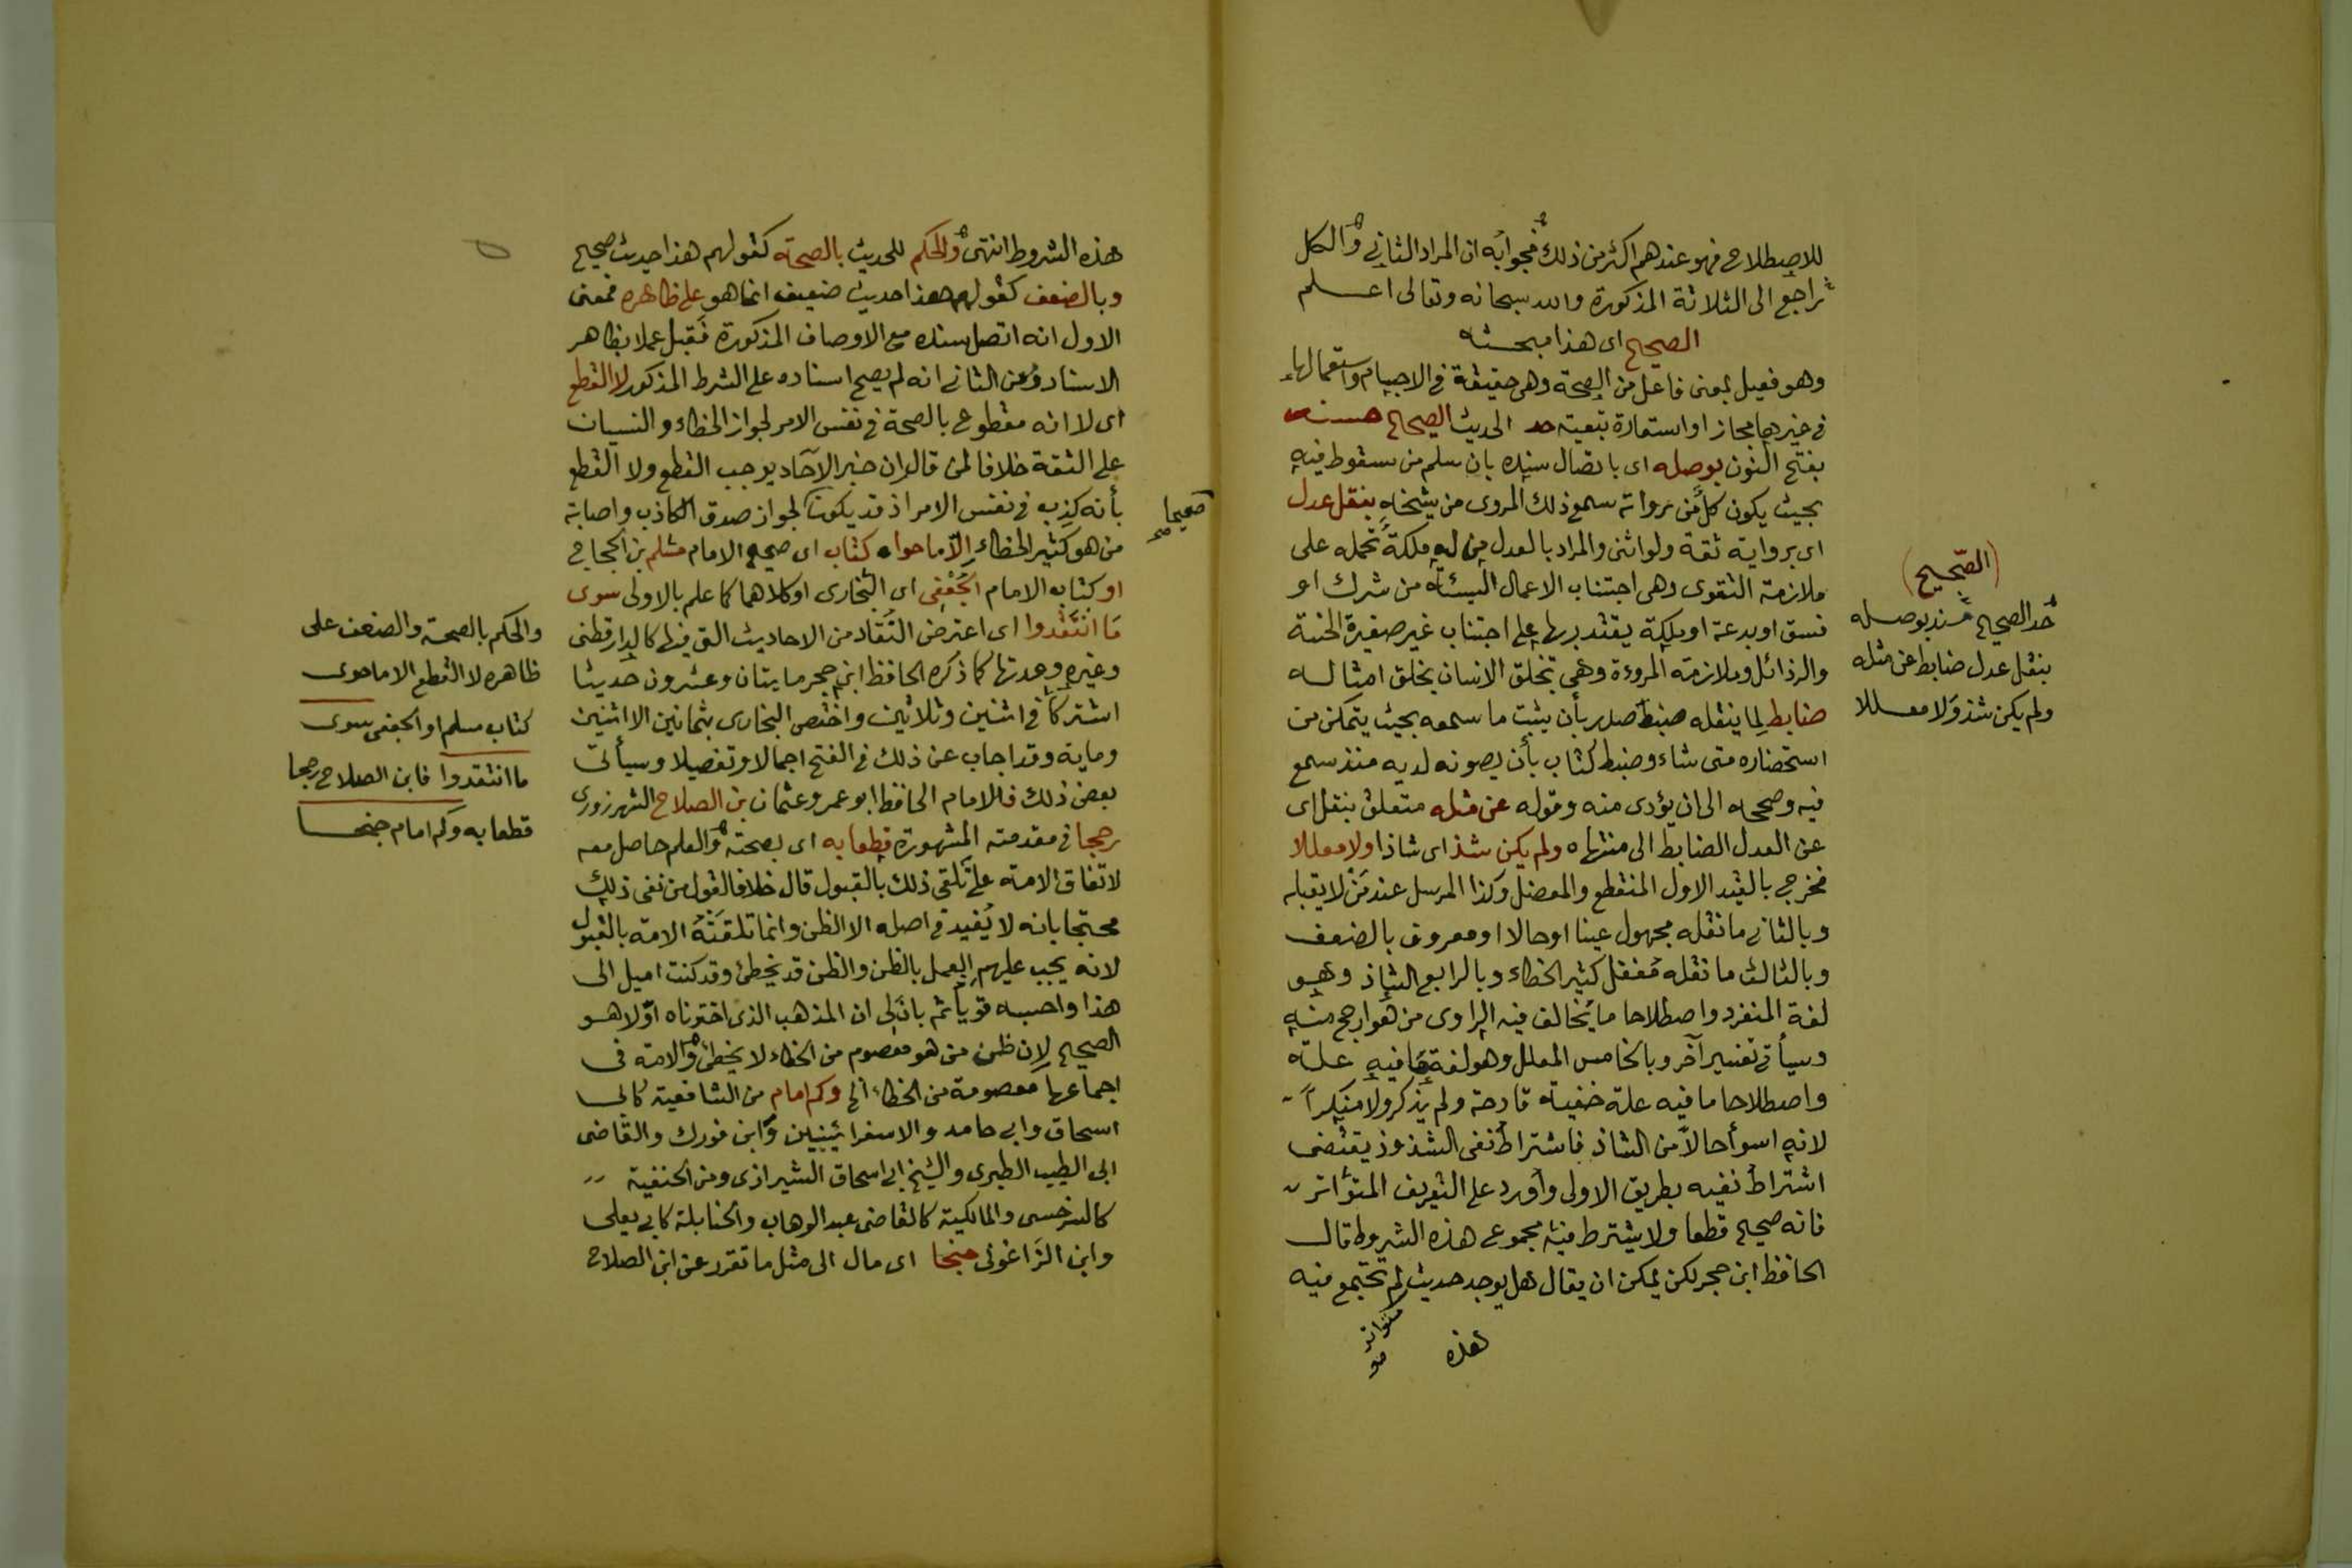 للاصطلاح فهو عندهم اكثر من ذلك فجوابه ان المراد الثاني والكل
راجع الى الثلاثة المذكورة والله سبحانه وتعالى اعلم
الصحيح اى هذا مبحثه
وهو فعيل بمعنى فاعل من الصحة وهى حقيقة في الاجسام واستعمالها
في غيرها مجاز او استعارة تبعية حد الحديث الصحيح مسنده
بفتح النون بوصله اى باتصال سنده بان سلم من سقوط فيه
بحيث يكون كل من رواته سمع ذلك المروى من شيخه بنقل عدل
اى برواية ثقة ولو انثى والمراد بالعدل من له ملكة تحمله على
ملازمة التقوى وهى اجتناب الاعمال السيئة من شرك او
فسق او بدعة او ملكة يقتدر بها على اجتناب غير صغيرة الخسة
والرذائل وملازمة المروءة وهى تخلق الانسان بخلق امثاله
ضابط لما ينقله ضبط صدر بأن يثبت ما سمعه بحيث يتمكن من
استحضاره متى شاء وضبط كتاب بأن يصونه لديه منذ سمع
فيه وصححه الى ان يؤدى منه وقوله عن مثله متعلق بنقل اى
عن العدل الضابط الى منتهاه ولم يكن شذ اى شاذا ولا معللا
فخرج بالقيد الاول المنقطع والمعضل وكذا المرسل عند مَنْ لا يقبله
وبالثاني ما نقله مجهول عينا او حالا او معروف بالضعف
وبالثالث ما نقله مغفل كثير الخطاء وبالرابع الشاذ وهو
لغة المنفرد واصطلاحا ما يخالف فيه الراوى من هو ارجح منه
وسيأتي تفسير آخر وبالخامس المعلل وهو لغة ما فيه علة
واصطلاحا ما فيه علة خفية قادحة ولم يذكر ولا منكراً
لانه اسوأ حالا من الشاذ فاشتراط نفى الشذوذ يقتضى
اشتراط نفيه بطريق الاولى وأورد على التعريف المتواتر
فانه صحيح قطعا ولا يشترط فيه مجموع هذه الشروط قال
الحافظ ابن حجر لكن يمكن ان يقال هل يوجد حديث لم تجتمع فيه
متواتر
هذه
(الصّحيح)
حد الصحيح مسند بوصله
بنقل عدل ضابط عن مثله
ولم يكن شذ ولا معللا
هذه الشروط انتهى والحكم للحديث بالصحة كقولهم هذا حديث صحيح
وبالضعف كقولهم هذا حديث ضعيف انما هو على ظاهره فمعنى
الاول انه اتصل سنده مع الاوصاف المذكورة فقبل عملا بظاهر
الاسناد ومعنى الثاني انه لم يصح اسناده على الشرط المذكور لا القطع
اى لا انه مقطوع بالصحة في نفس الامر لجواز الخطاء والنسيان
على الثقة خلافا لمن قال ان خبر الآحاد يوجب القطع ولا القطع
بأنه كذب في نفس الامر اذ قد يكون لجواز صدق الكاذب واصابة
صحيحا
من هو كثير الخطاء الّا ما حواه كتاب اى صحيح الامام مسلم بن الحجاج
او كتاب الامام الجُعْفِى اى البخارى او كلاهما كما علم بالاولى سوى
مَا انتَقَدوا اى اعترض النُقّاد من الاحاديث التى فيها كالدارقطنى
وغيره وعدتها كما ذكره الحافظ ابن حجر مايتان وعشرون حديثا
اشتركا في اثنين وثلاثين واختص البخارى بثمانين الا اثنين
وماية وقد اجاب عن ذلك في الفتح اجمالا وتفصيلا وسيأتى
بعض ذلك فالامام الحافظ ابو عمرو عثمان بن الصلاح الشهرزورى
رجحا في مقدمته المشهورة قطعا به اى بصحته والعلم حاصل معه
لاتفاق الامة على تلقى ذلك بالقبول قال خلافا لقول من نفى ذلك
محتجا بانه لا يُفيد في اصله الا الظن وانما تلقته الامة بالقبول
لانه يجب عليهم العمل بالظن والظن قد يخطئ وقد كنت اميل الى
هذا واحسبه قويا ثم بان لى ان المذهب الذى اخترناه اوّلا هو
الصحيح لان ظن من هو معصوم من الخطاء لا يخطئ والامة في
اجماعها معصومة من الخطاء الخ وكم امام من الشافعية كابى
اسحاق وابى حامد والاسفرائينيين وابن فورك والقاضى
ابى الطيب الطبرى والشيخ ابى اسحاق الشيرازى ومن الحنفية
كالسرخسى والمالكية كالقاضى عبد الوهاب والحنابلة كابى يعلى
وابن الزاغونى جنحا اى مال الى مثل ما تقرر عن ابن الصلاح
والحكم بالصحة والضعف على
ظاهره لا القطع الا ما حوى
كتاب مسلم او الجعفى سوى
ما انتقدوا فابن الصلاح رجحا
قطعا به وكم امام جنحا